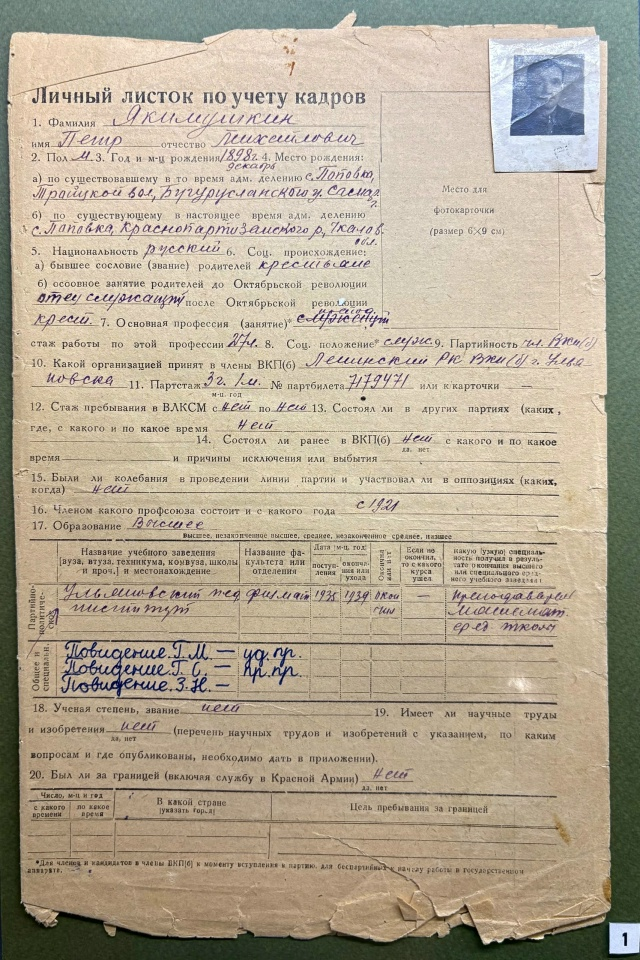 Личный листок по учету кадров
1. Фамилия Якимушкин
имя Петр отчество Михайлович
2. Пол м. 3. Год и м-ц рождения 1898 г. 4. Место рождения:
декабрь
а) по существовавшему в то время адм. делению с. Лаповка,
Троицкой вол, Бугурусланского у. Самар.
г.
б) по существующему в настоящее время адм. делению
с. Лаповка, Краснопартизанского р, Чкалов.
обл.
Место для
фотокарточки
(размер 6×9 см)
5. Национальность русский 6. Соц. происхождение:
а) бывшее сословие (звание) родителей крестьяне
б) основное занятие родителей до Октябрьской революции
отец служащий после Октябрьской революции
крест. 7. Основная профессия (занятие)*
стаж работы по этой профессии 27 л. 8. Соц. положение* служ. 9. Партийность чл. ВКП(б)
10. Какой организацией принят в члены ВКП(б) Ленинский РК ВКП(б) г. Улья
новска 11. Партстаж 3 г. 1 м. № партбилета 7179471 или к-карточки —
м-ц. год
12. Стаж пребывания в ВЛКСМ с нет по нет 13. Состоял ли в других партиях (каких,
где, с какого и по какое время нет
14. Состоял ли ранее в ВКП(б) нет с какого и по какое
да, нет
время и причины исключения или выбытия
15. Были ли колебания в проведении линии партии и участвовал ли в оппозициях (каких,
когда) нет
16. Членом какого профсоюза состоит и с какого года с 1921
17. Образование Высшее
высшее, незаконченное высшее, среднее, незаконченное среднее, низшее
Название учебного заведения Название фа- Дата (м-ц, год) Окончил или нет Если не какую (узкую) специаль-
(вуза, втуза, техникума, комвуза, школы культета или поступ- окончан. окончил, ность получил в резуль-
и проч.) и местонахождение отделения ления или то с какого тате окончания высшего
ухода курса или специального средн-
ушел его учебного заведения
Партийно-политическ. Ульяновский пед физмат 1935 1939 окон — преподаватель
институт чил математ.
сред школ
Общее и специальн. Повидение. Г. М. — уд. пр.
Повидение. Г. С. — пр. пр.
Повидение. З. Н. —
18. Ученая степень, звание нет 19. Имеет ли научные труды
и изобретения нет (перечень научных трудов и изобретений с указанием, по каким
да, нет
вопросам и где опубликованы, необходимо дать в приложении).
20. Был ли за границей (включая службу в Красной Армии) нет
да, нет
Число, м-ц и год В какой стране Цель пребывания за границей
с какого времени по какое время (указать город)
*Для членов и кандидатов в члены ВКП(б) к моменту вступления в партию, для беспартийных к началу работы в государственном
аппарате.
1